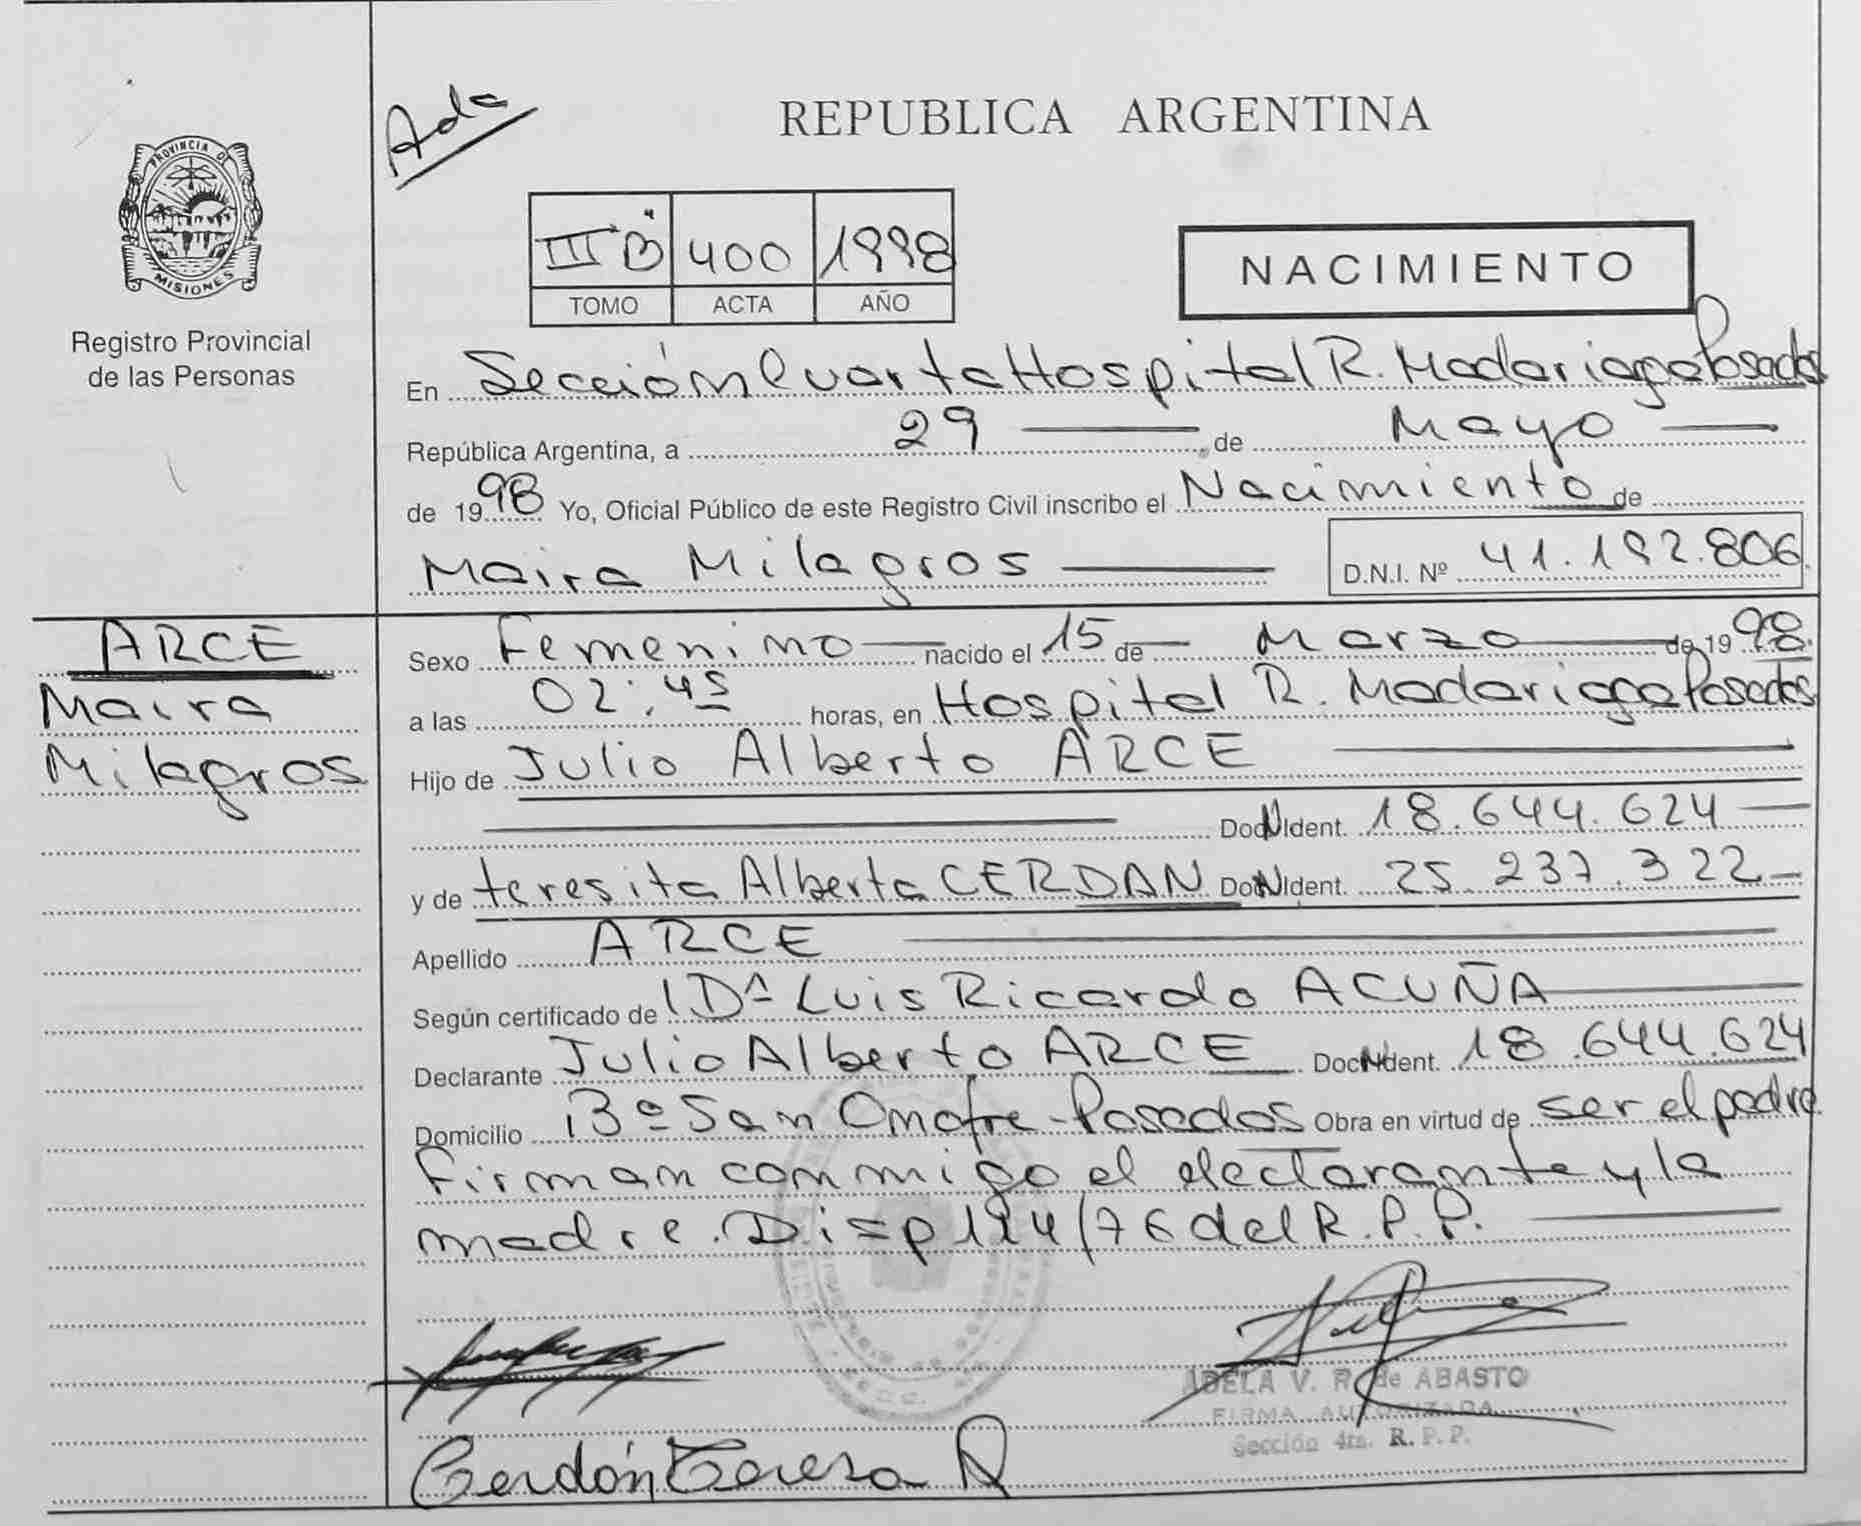 Ada
REPUBLICA ARGENTINA
PROVINCIA DE
MISIONES
Registro Provincial
de las Personas
III B 400 1998
TOMO ACTA AÑO
NACIMIENTO
En Sección Cuarta Hospital R. Madariaga Posadas
República Argentina, a 29 , de Mayo
de 1998 Yo, Oficial Público de este Registro Civil inscribo el Nacimiento de
Maira Milagros D.N.I. Nº 41.192.806
ARCE
Maira
Milagros
Sexo Femenino nacido el 15 de Marzo de 1998.
a las 02:45 horas, en Hospital R. Madariaga Posadas
Hijo de Julio Alberto ARCE
Doc Ident. 18.644.624
y de teresita Alberta CERDAN Doc Ident. 25.237.322
Apellido ARCE
Según certificado de Dr Luis Ricardo ACUÑA
Declarante Julio Alberto ARCE Doc Ident. 18.644.624
Domicilio Bº San Onofre - Posadas Obra en virtud de ser el padre
Firman conmigo el declarante y la
madre. Disp 194/76 del R.P.P.
ADELA V. R. de ABASTO
FIRMA AUTORIZADA
Sección 4ta. R.P.P.
Cerdán Teresa A